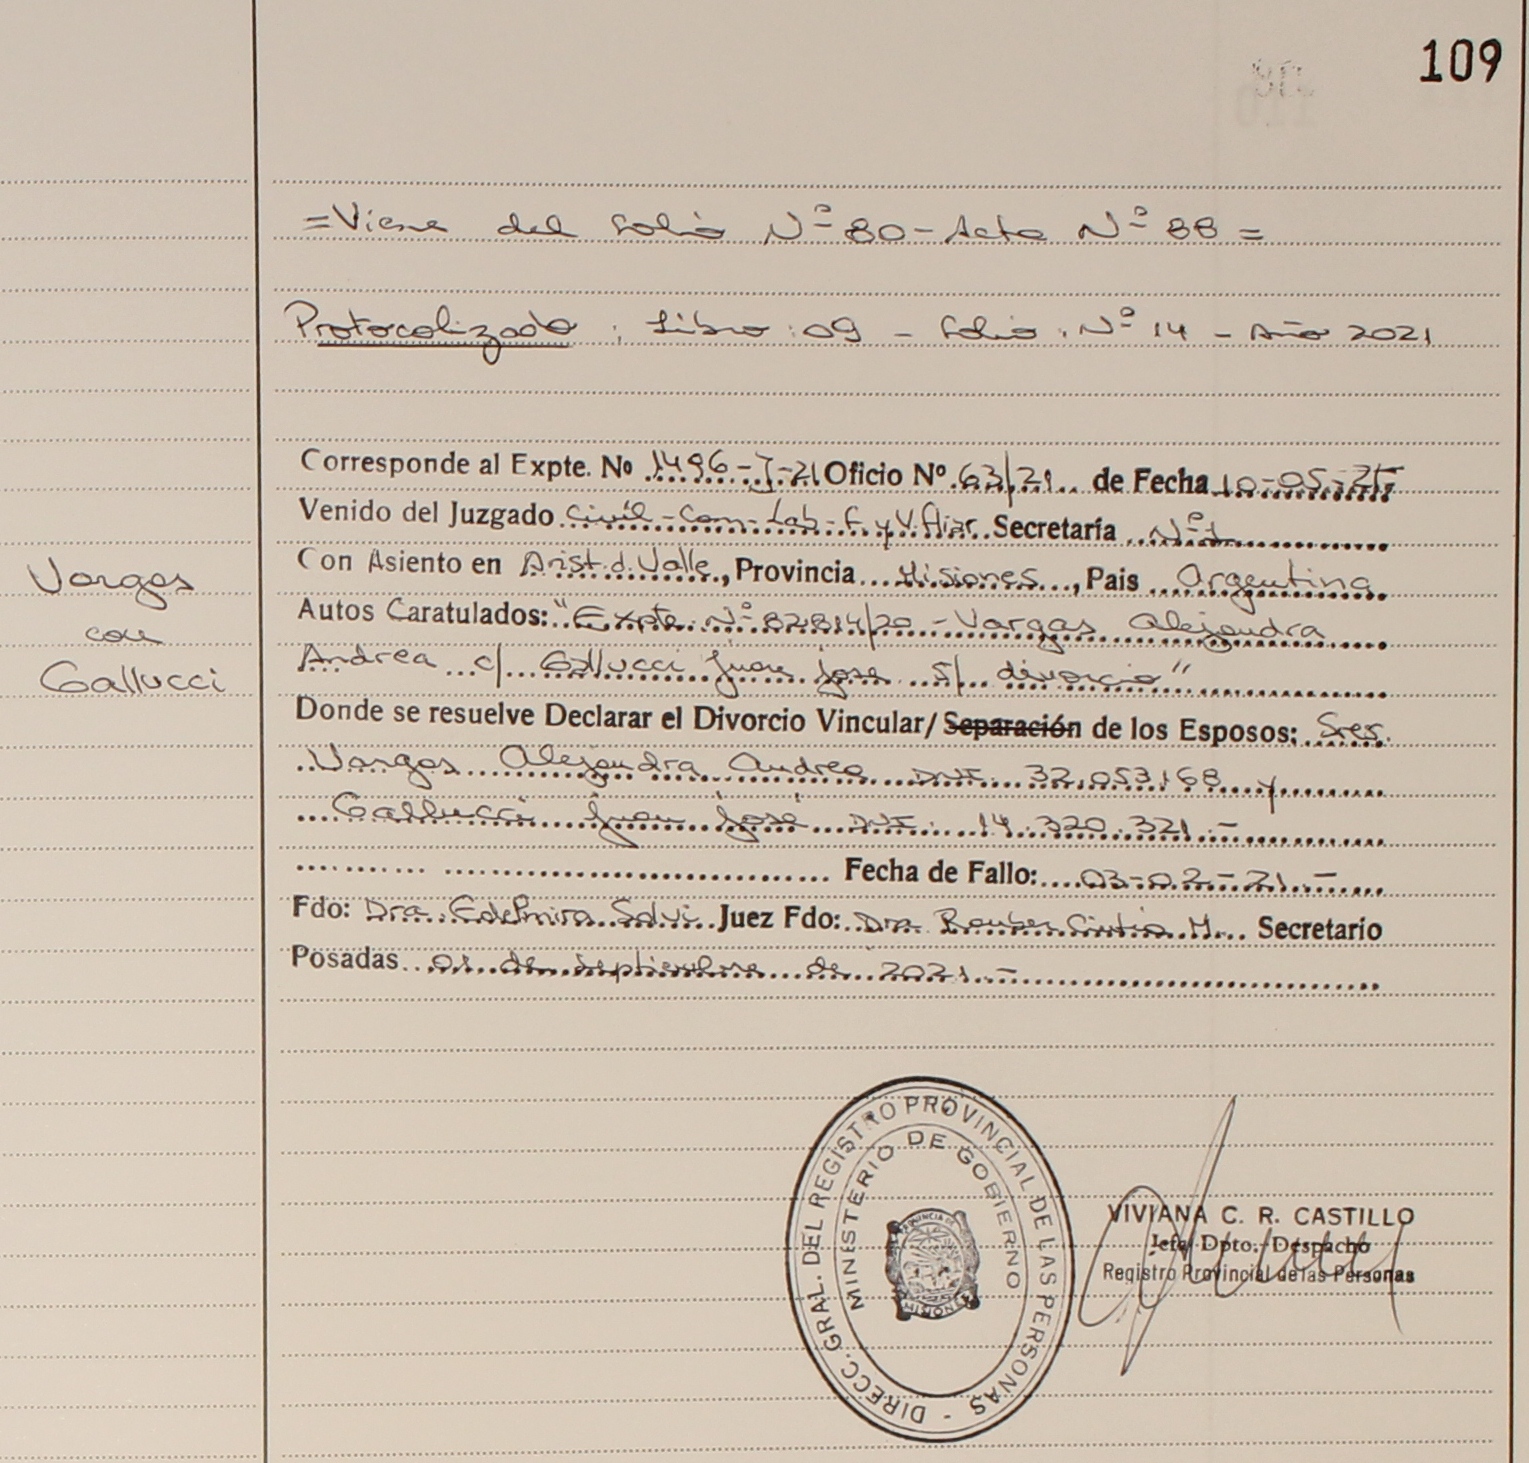 109
=Viene del folio Nº 80 - Acta Nº 88 =
Protocolizado : Libro : 09 - folio : Nº 14 - Año 2021
Corresponde al Expte. Nº 1496-J-21 Oficio Nº 63/21 de Fecha 10-05-21
Venido del Juzgado Civil-Com-Lab-F. y V. fliar. Secretaría Nº 1
Con Asiento en Arist. d. Valle, Provincia Misiones, Pais Argentina
Autos Caratulados: "Expte. Nº 82814/20 - Vargas Alejandra
Andrea c/ Gallucci Juan José s/ divorcio"
Donde se resuelve Declarar el Divorcio Vincular/ Separación de los Esposos: Sres.
Vargas Alejandra Andrea DNI. 32.053.168 y
Gallucci Juan José DNI. 14.320.321.-
Fecha de Fallo: 03-02-21.-
Fdo: Dra. Edelmira Salvi Juez Fdo: Dra. Cintia M. Secretario
Posadas 01 de septiembre de 2021.-
Vargas
con
Gallucci
DIRECC. GRAL. DEL REGISTRO PROVINCIAL DE LAS PERSONAS -
MINISTERIO DE GOBIERNO
PROVINCIA DE
MISIONES
VIVIANA C. R. CASTILLO
Jefe Dpto. Despacho
Registro Provincial de las Personas